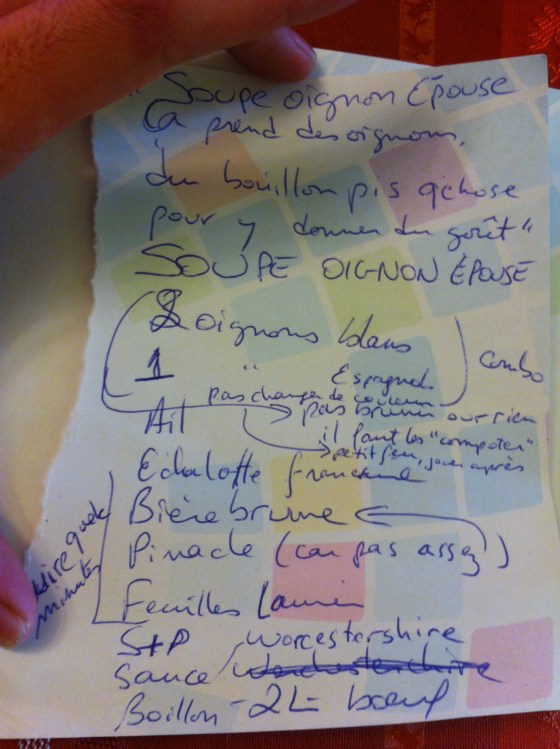 "Soupe oignon Épouse
Ça prend des oignons,
du bouillon pis qchose
pour y donner du goût"
SOUPE OIGNON ÉPOUSE
2 oignons blancs
1 " Espagnols
combo
pas changer de couleur
Ail pas brunir ou rien
il faut les "compoter"
petit feu, après
Échalotte française
Bière brune
Pinacle (car pas assez)
quelq minutes
Feuilles Laurier
S+P Worcestershire
Sauce
Boillon - 2L boeuf